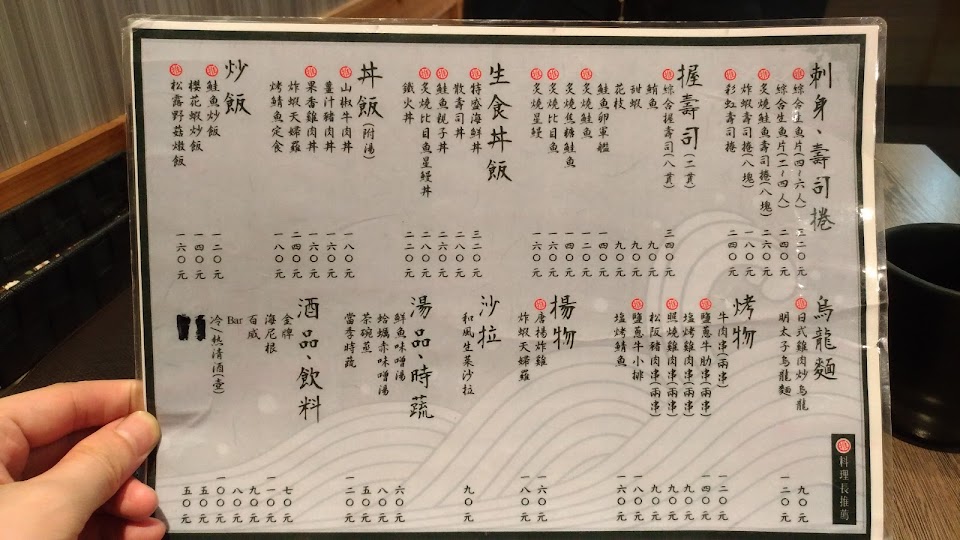 刺身、壽司捲
綜合生魚片(四~六人) 三二〇元
綜合生魚片(二~四人) 二四〇元
炙燒鮭魚壽司捲(八塊) 二六〇元
炸蝦壽司捲(八塊) 一四〇元
彩虹壽司捲 二四〇元
握壽司(二貫)
綜合握壽司(八貫) 三四〇元
鮪魚 九〇元
甜蝦 九〇元
花枝 九〇元
鮭魚卵軍艦 一四〇元
炙燒鮭魚 一二〇元
炙燒焦糖鮭魚 一四〇元
炙燒比目魚 一六〇元
炙燒星鰻 一六〇元
生食丼飯
特盛海鮮丼 三二〇元
散壽司丼 二八〇元
鮭魚親子丼 二六〇元
炙燒比目魚星鰻丼 二八〇元
鐵火丼 二二〇元
丼飯(附湯)
山椒牛肉丼 一八〇元
薑汁豬肉丼 一六〇元
果香雞肉丼 一六〇元
炸蝦天婦羅 二四〇元
烤鯖魚定食 一八〇元
炒飯
鮭魚炒飯 一二〇元
櫻花蝦炒飯 一四〇元
松露野菇燉飯 一六〇元
烏龍麵
日式雞肉炒烏龍 九〇元
明太子烏龍麵 一二〇元
烤物
牛肉串(兩串) 一二〇元
鹽蔥牛肋串(兩串) 一四〇元
塩烤雞肉串(兩串) 九〇元
照燒雞肉串(兩串) 九〇元
松阪豬肉串(兩串) 九〇元
塩蔥牛小排 一八〇元
塩烤鯖魚 一六〇元
揚物
唐揚炸雞 一六〇元
炸蝦天婦羅 一八〇元
沙拉
和風生菜沙拉 九〇元
湯品、時蔬
鮮魚味噌湯 六〇元
蛤蠣赤味噌湯 八〇元
茶碗蒸 五〇元
當季時蔬 一二〇元
酒品、飲料
金牌 七〇元
海尼根 一一〇元
百威 九〇元
Bar 八〇元
冷/熱清酒(壺) 一〇〇元
五〇元
五〇元
料理長推薦